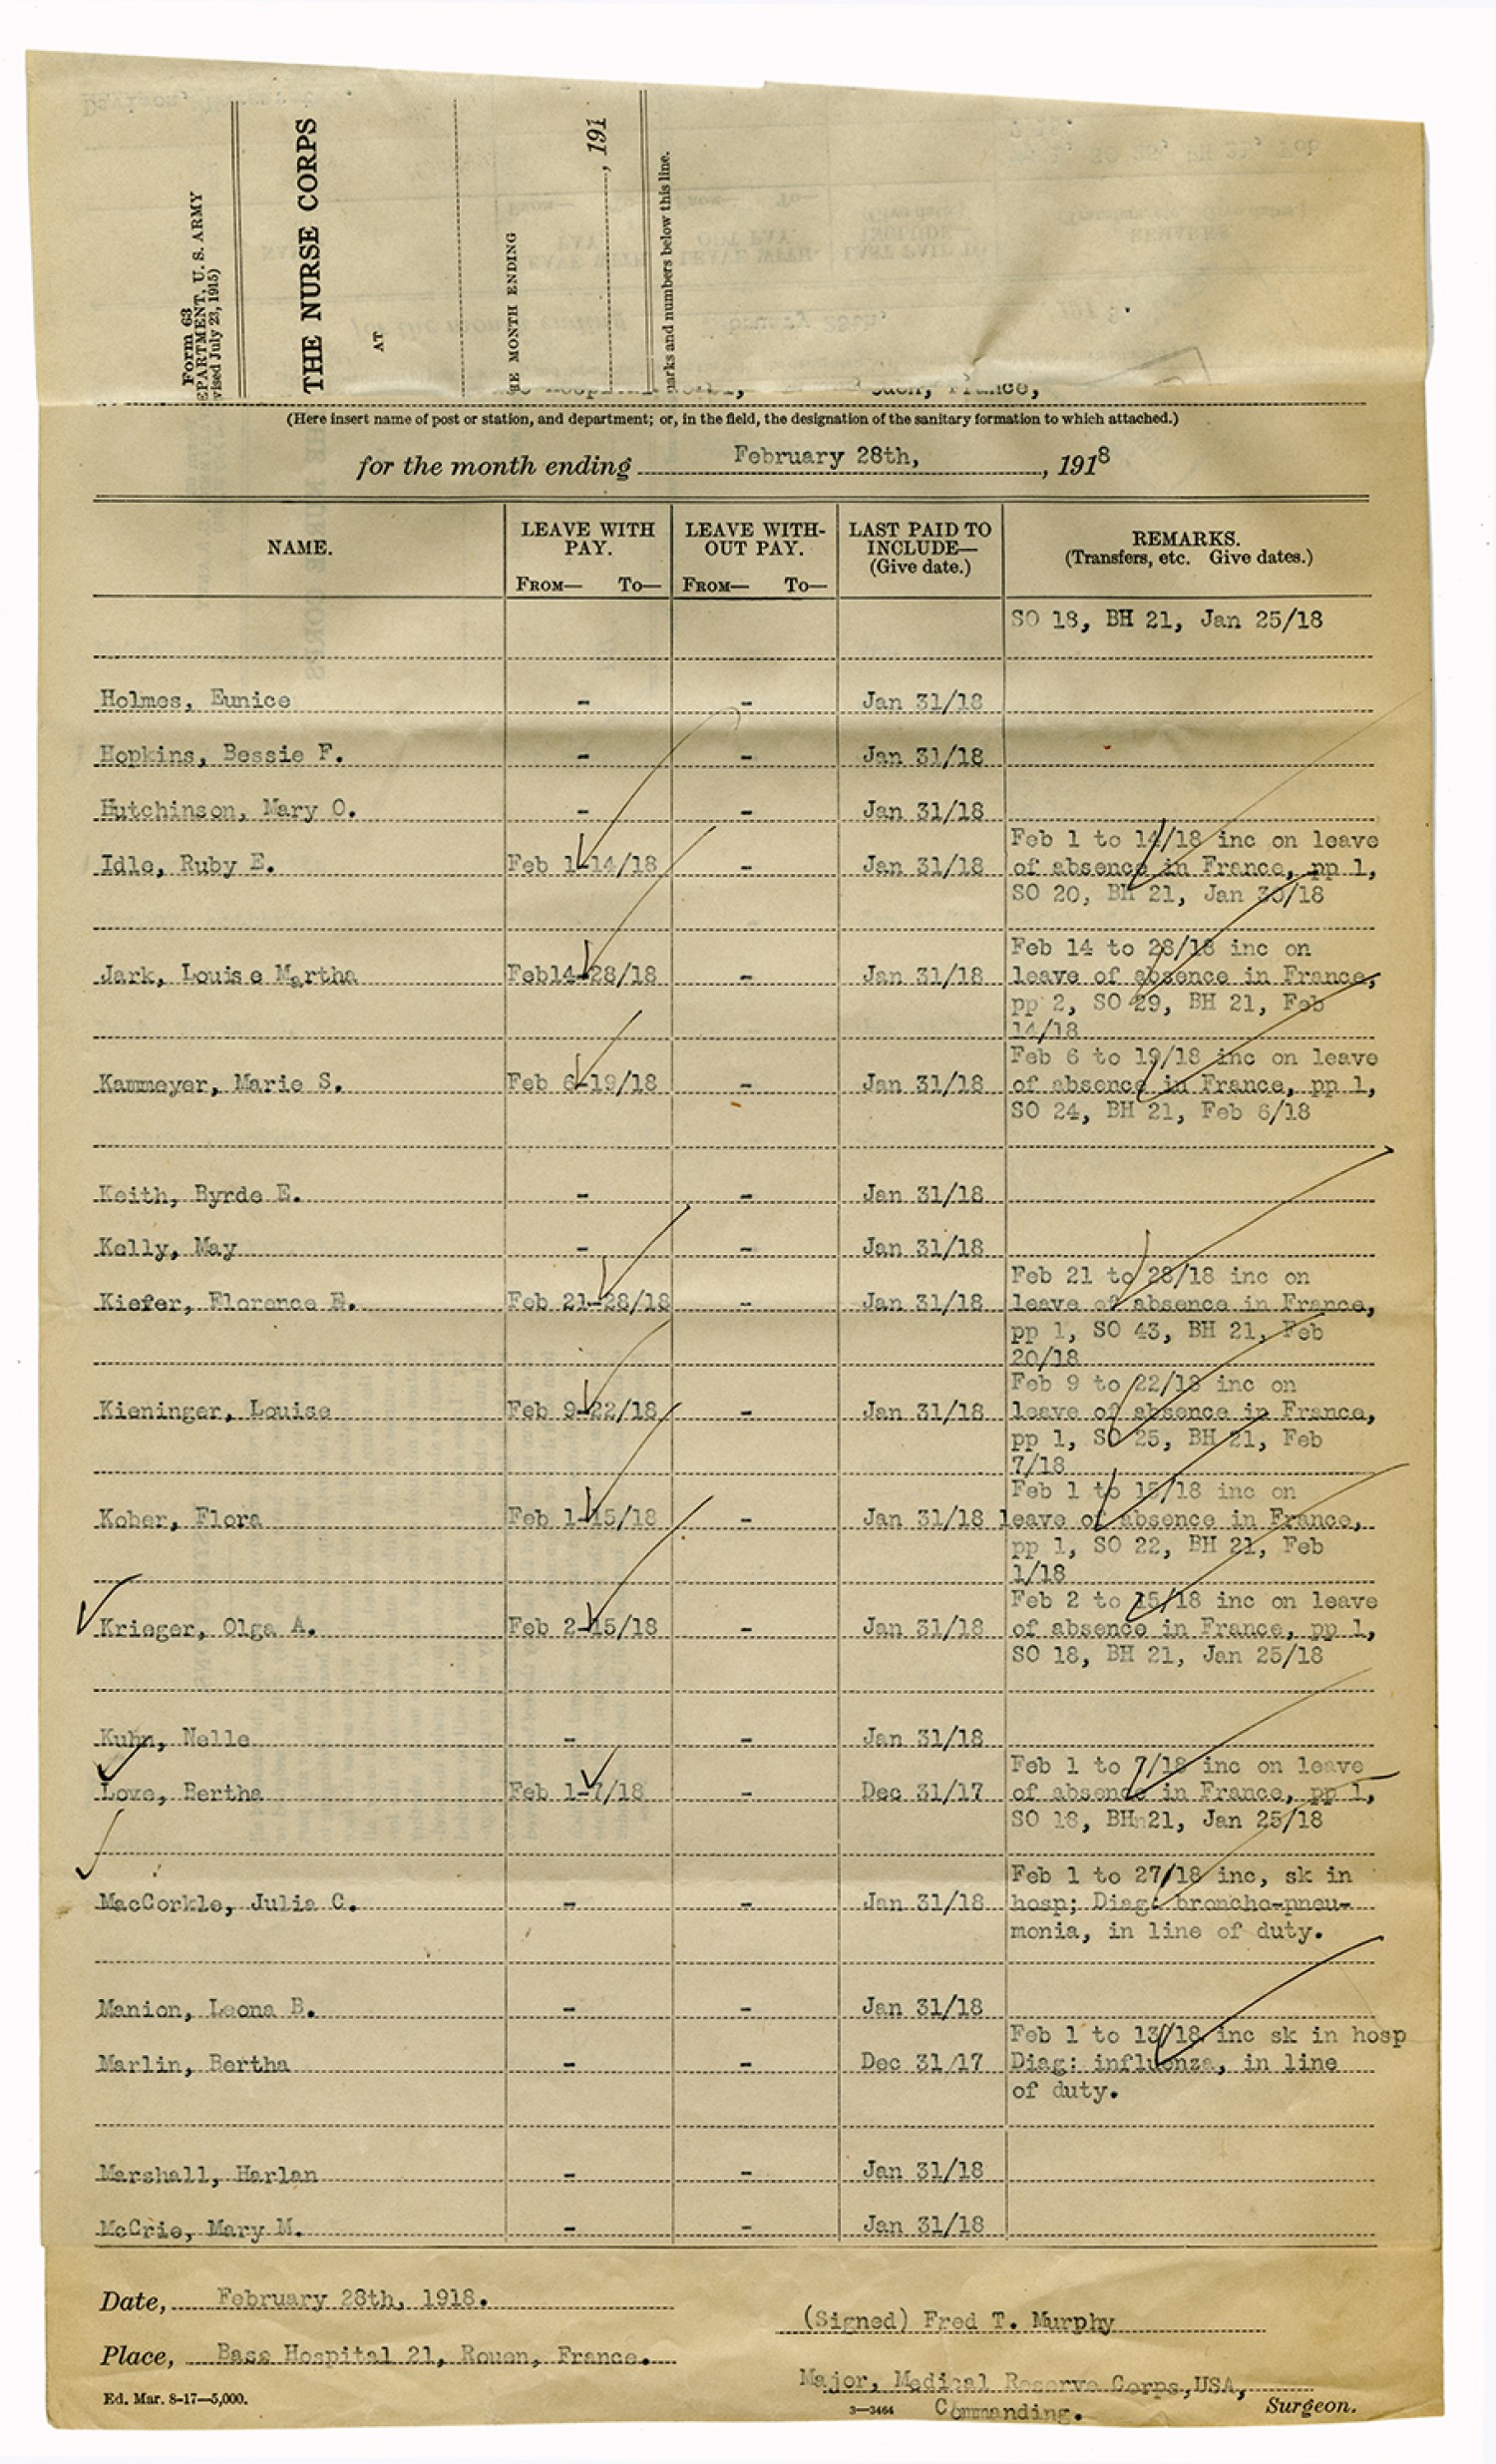 Form 63
EPARTMENT, U. S. ARMY
vised July 23, 1915)
THE NURSE CORPS
AT
E MONTH ENDING
, 191
arks and numbers below this line.
France,
(Here insert name of post or station, and department; or, in the field, the designation of the sanitary formation to which attached.)
for the month ending February 28th, , 1918
NAME. LEAVE WITH PAY. From— To— LEAVE WITH-OUT PAY. From— To— LAST PAID TO INCLUDE— (Give date.) REMARKS. (Transfers, etc. Give dates.)
SO 18, BH 21, Jan 25/18
Holmes, Eunice - - Jan 31/18
Hopkins, Bessie F. - - Jan 31/18
Hutchinson, Mary O. - - Jan 31/18
Feb 1 to 14/18 inc on leave
Idle, Ruby E. Feb 1-14/18 - Jan 31/18 of absence in France, pp 1,
SO 20, BH 21, Jan 30/18
Feb 14 to 28/18 inc on
Jark, Louise Martha Feb14-28/18 - Jan 31/18 leave of absence in France,
pp 2, SO 29, BH 21, Feb
14/18
Feb 6 to 19/18 inc on leave
Kammeyer, Marie S. Feb 6-19/18 - Jan 31/18 of absence in France, pp 1,
SO 24, BH 21, Feb 6/18
Keith, Byrde E. - - Jan 31/18
Kelly, May - - Jan 31/18
Feb 21 to 28/18 inc on
Kiefer, Florence E. Feb 21-28/18 - Jan 31/18 leave of absence in France,
pp 1, SO 43, BH 21, Feb
20/18
Feb 9 to 22/18 inc on
Kieninger, Louise Feb 9-22/18 - Jan 31/18 leave of absence in France,
pp 1, SO 25, BH 21, Feb
7/18
Feb 1 to 15/18 inc on
Kober, Flora Feb 1-15/18 - Jan 31/18 leave of absence in France,
pp 1, SO 22, BH 21, Feb
1/18
Feb 2 to 15/18 inc on leave
Krieger, Olga A. Feb 2-15/18 - Jan 31/18 of absence in France, pp 1,
SO 18, BH 21, Jan 25/18
Kuhn, Nelle - - Jan 31/18
Feb 1 to 7/18 inc on leave
Love, Bertha Feb 1-7/18 - Dec 31/17 of absence in France, pp 1,
SO 18, BHn21, Jan 25/18
Feb 1 to 27/18 inc, sk in
MacCorkle, Julia C. - - Jan 31/18 hosp; Diag: broncho-pneu-
monia, in line of duty.
Manion, Leona B. - - Jan 31/18
Feb 1 to 13/18 inc sk in hosp
Marlin, Bertha - - Dec 31/17 Diag: influenza, in line
of duty.
Marshall, Harlan - - Jan 31/18
McCrie, Mary M. - - Jan 31/18
Date, February 28th, 1918.
(Signed) Fred T. Murphy
Place, Base Hospital 21, Rouen, France.
Major, Medical Reserve Corps,USA,
Ed. Mar. 8-17—5,000. 3—3464 Commanding. Surgeon.